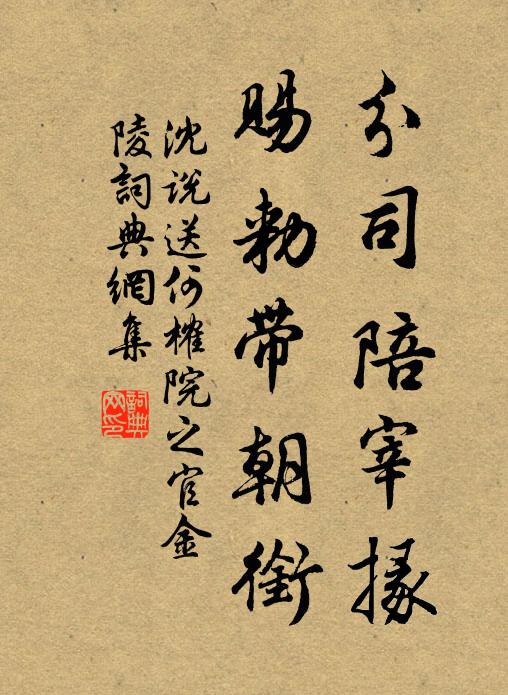 分司陪宰掾
賜勅帶朝銜
沈說送何榷院之官金
陵詞典網集
詞典網印